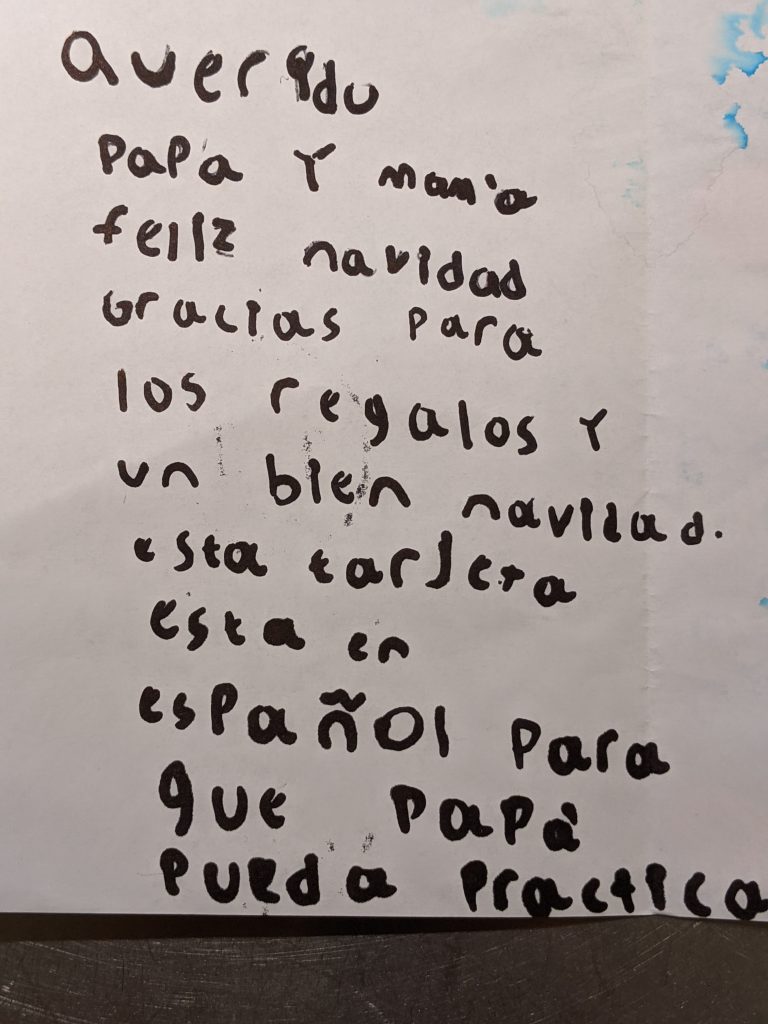 Querido
Papá Y mamá
feliz navidad
Gracias para
los regalos Y
un bien navidad.
esta tarjeta
esta en
español para
que Papá
pueda practica